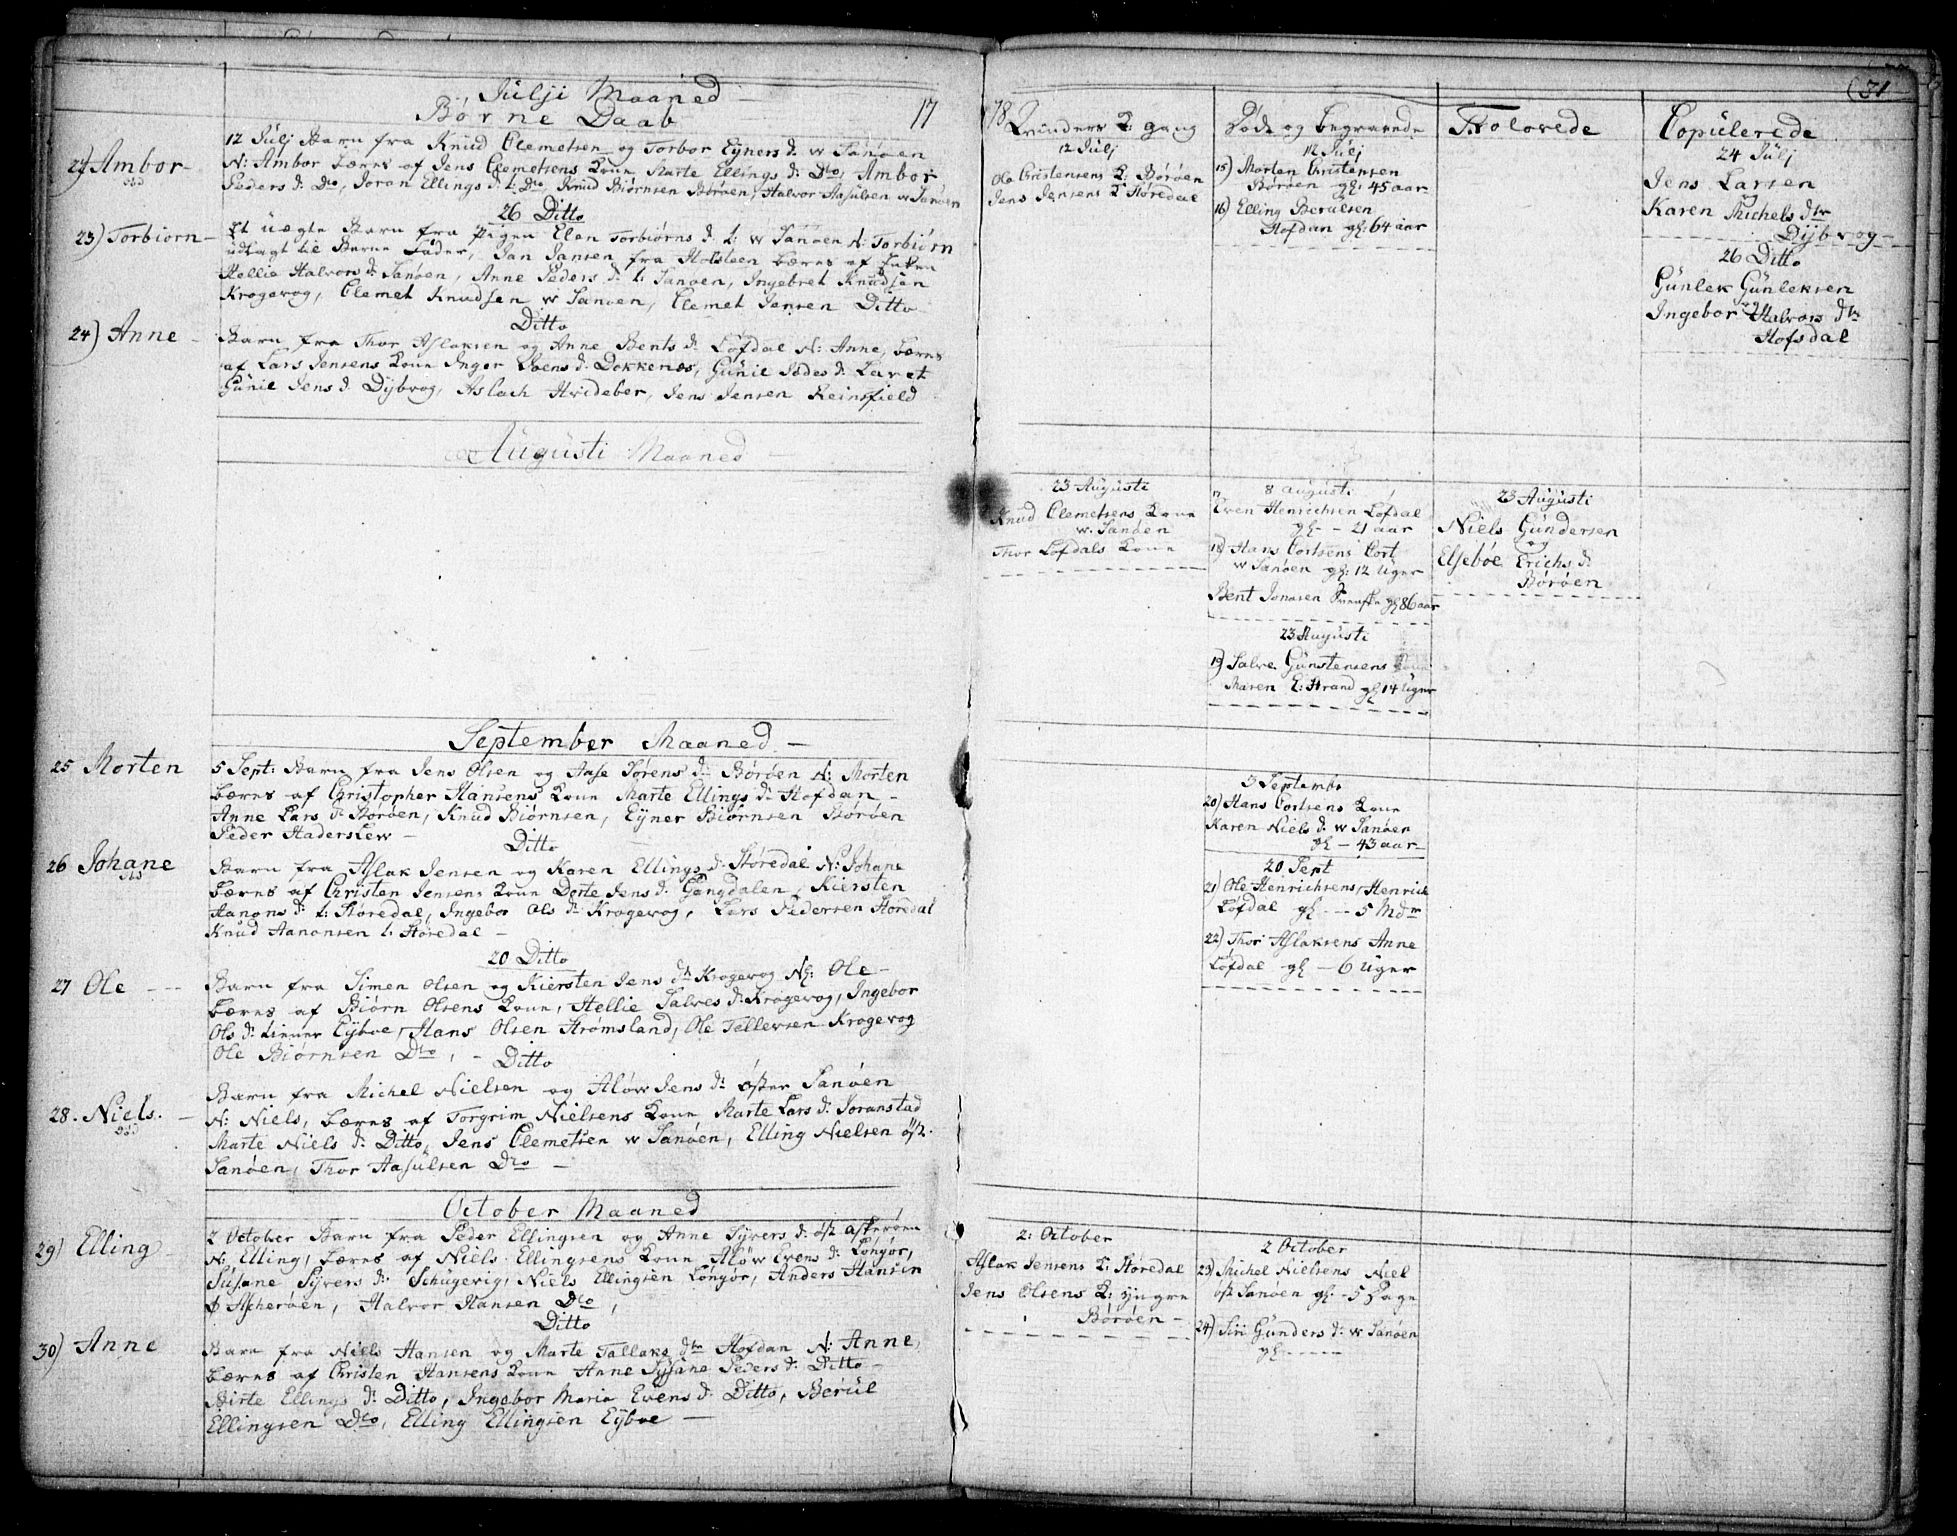 Julji Maaned
Børne Daab 17
22) Ambor
obd
12 Julj Barn fra Knud Clemetsen og Torbor Eyners d: w Sanøen
N: Ambor bæres af Jens Clemetsens Kone Marte Ellings d: Dto, Ambor
Peders d: Dto, Joran Ellings d: t: Dto, Knud Biørnsen Børøen, Halvor Aasulsen w Sanøen
26 Ditto
23) Torbiorn
Et uægte Barn fra Pigen Elen Torbiørns d: t: w Sanøen N: Torbiørn
udlagt til Barne Fader, Jan Jansen fra Holsteen bæres af Enken
Hellie Halvors d: Sanøen, Anne Peders d: t: Sanøen, Ingebret Knudsen
Krogevog, Clemet Knudsen w Sanøen, Clemet Jensen Ditto
Ditto
24) Anne
Barn fra Thor Aslaksen og Anne Bents d: Lofdal N: Anne, bæres
af Lars Jensens Kone Inger Soens d: Dokkenes, Gunil Sødes d: Laret
Gunil Jens d: Dybvog, Aslach Hvideber, Jens Jensen Reinsfield
Augusti Maaned
September Maaned
25 Morten
5 Sept: Barn fra Jens Olsen og Aase Sørens d: Børøen N: Morten
bæres af Christopher Hansens Kone Marte Ellings d: Hofdan
Anne Lars d: Borøen, Knud Biørnsen, Eyner Biørnsen Børøen
Peder Haderslew
Ditto
26 Johane
obd
Barn fra Aslak Jensen og Karen Ellings d: Høredal N: Johane
bæres af Christen Jensens Kone Dorte Jens d: Gangdalen, Kiersten
Aanons d: t: Høredal, Ingebor Ols d: Krogevog, Lars Pedersen Høredal
Knud Aanonsen t: Høredal
20 Ditto
27 Ole
Barn fra Simen Olsen og Kiersten Jens d: Krogevog N: Ole
bæres af Biørn Olsens Kone, Hellie Salves d: Krogevog, Ingebor
Ols d: tiener Eyboe, Hans Olsen Strømsland, Ole Tellevsen Krogevog
Ole Biørnsen Dto,
Ditto
28. Niels.
obd
Barn fra Michel Nielsen og Aløw Jens d: Øster Sanøen
N: Niels, bæres af Torgrim Nielsens Kone Marte Lars d: Joranstad
Marte Niels d: Ditto, Jens Clemetsen w Sanøen, Elling Nielsen øst.
Sanøen, Thor Aasulsen Dto
October Maaned
29) Elling
2 October Barn fra Peder Ellingsen og Anne Syvers d: øst Askerøen
N: Elling, bæres af Niels Ellingsens Kone Aløw Evens d: Longør,
Susane Syvers d: Schugevig, Niels Ellingsen Longør, Anders Hansen
Ascherøen, Halvor Hansen Dto,
Ditto
30) Anne
Barn fra Niels Hansen og Marte Tallaks dtr Hofdan N: Anne,
bæres af Christen Hansens Kone Anne Susane Peders d: Ditto
Birte Ellings d: Ditto, Ingebor Maria Evens d: Ditto, Berul
Ellingsen Dto, Elling Ellingsen Eyboe
78
Qvinders K: gang
12 Julj
Ole Christensens K: Børøen
Jens Jensens K Høredal
23 Augusti
Knud Clemetsens Kone
w. Sanøen
Thor Lofdals Kone
2: October
Aslak Jensens K: Høredal
Jens Olsens K: yngre
Børøen
Døde og begravede
12 Julj
15) Morten Christensen
Børøen gl: 45 aar
16) Elling Berulsen
Hofdan gl: 64 aar
8 Augusti
17 Even Henrichsen Lofdal
gl - 21 aar
18) Hans Cortsens Cort
w Sanøen gl: 12 Uger
Bent Jonasen Svenske gl 86 aar
23 Augusti
19) Salve Gunstensens
Maren E: Strand gl 14 Uger
5 Septembr
20) Hans Cortsens Kone
Karen Niels d: w Sanøen
gl - 43 aar
20 Sept
21) Ole Henrichsens Henrich
Lofdal gl - 5 Mdr
22) Thor Aslaksens Anne
Lofdal gl - 6 Uger
2 October
23) Michel Nielsens Niel
øst Sanøen gl - 5 Dage
24) Siri Gunders d: w Sanøen
gl
Trolovede
23 Augusti
Niels Gundersen
og
Elseboe Erichs d:
Børøen
(31
Copulerede
24 Julj
Jens Larsen
Karen Michels dtr
Dybvog
26 Ditto
Gunlek Gunleksen
og
Ingebor Halvors dtr
Hofsdal